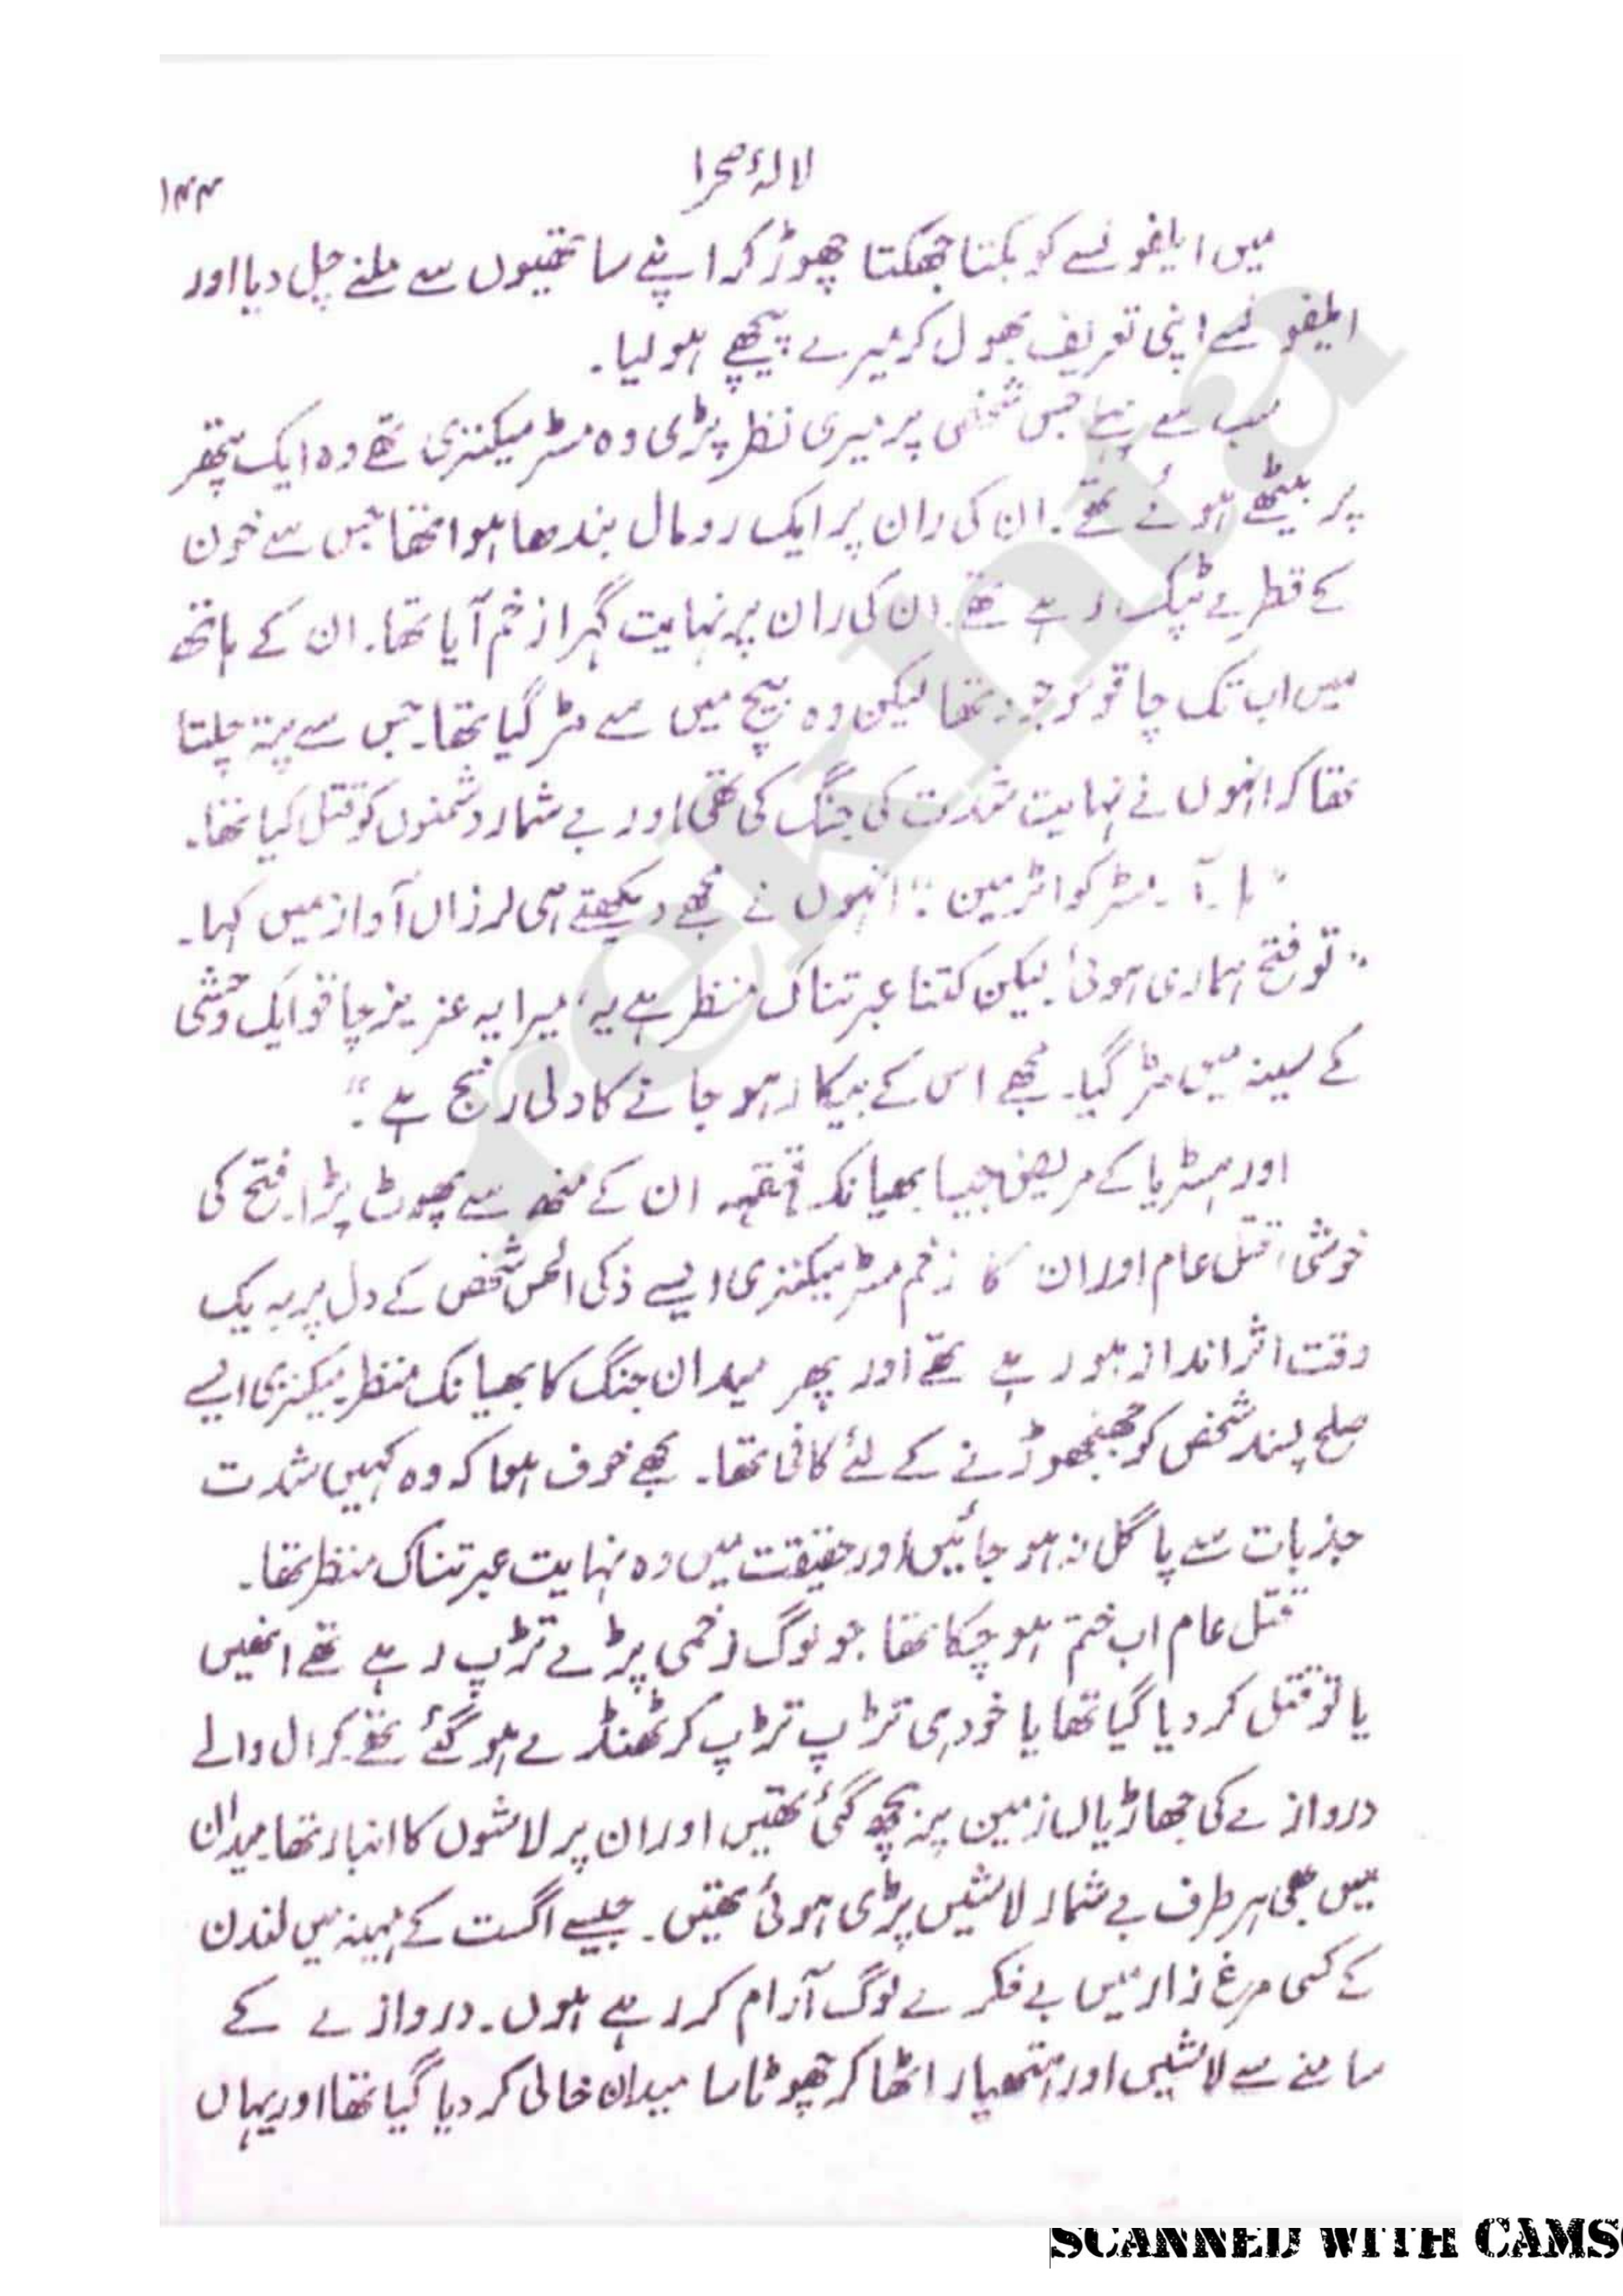 لالۂ صحرا
۱۴۴
میں ایلفونسے کو بکتا جھکتا چھوڑ کر اپنے ساتھیوں سے ملنے چل دیا اور
ایلفونسے اپنی تعریف بھول کر میرے پیچھے ہو لیا۔
سب سے پہلے جس شخص پر میری نظر پڑی وہ مسٹر میکنزی تھے وہ ایک پتھر
پر بیٹھے ہوئے تھے۔ ان کی ران پر ایک رومال بندھا ہوا تھا جس سے خون
کے قطرے ٹپک رہے تھے۔ ان کی ران پر نہایت گہرا زخم آیا تھا۔ ان کے ہاتھ
میں اب تک چاقو موجود تھا لیکن وہ بیچ میں سے مڑ گیا تھا۔ جس سے پتہ چلتا
تھا کہ انہوں نے نہایت شدت کی جنگ کی تھی اور بے شمار دشمنوں کو قتل کیا تھا۔
"ہا۔ آ۔ مسٹر کواٹرمین۔" انہوں نے مجھے دیکھتے ہی لرزاں آواز میں کہا۔
"تو فتح ہماری ہوئی۔ لیکن کتنا عبرتناک منظر ہے یہ، میرا یہ عزیز چاقو ایک وحشی
کے سینہ میں مڑ گیا۔ مجھے اس کے بیکار ہو جانے کا دلی رنج ہے۔"
اور ہسٹریا کے مریض جیسا بھیانک قہقہہ ان کے منھ سے پھوٹ پڑا۔ فتح کی
خوشی، قتل عام اور ان کا زخم مسٹر میکنزی ایسے ذکی الحس شخص کے دل پر بہ یک
وقت اثر انداز ہو رہے تھے اور پھر میدان جنگ کا بھیانک منظر میکنزی ایسے
صلح پسند شخص کو جھنجھوڑنے کے لئے کافی تھا۔ مجھے خوف ہوا کہ وہ کہیں شدت
جذبات سے پاگل نہ ہو جائیں اور حقیقت میں وہ نہایت عبرتناک منظر تھا۔
قتل عام اب ختم ہو چکا تھا جو لوگ زخمی پڑے تڑپ رہے تھے انھیں
یا تو قتل کر دیا گیا تھا یا خود ہی تڑپ تڑپ کر ٹھنڈے ہو گئے تھے۔ کرال والے
دروازے کی جھاڑیاں زمین پر بچھ گئی تھیں اور ان پر لاشوں کا انبار تھا۔ میدان
میں بھی ہر طرف بے شمار لاشیں پڑی ہوئی تھیں۔ جیسے اگست کے مہینہ میں لندن
کے کسی مرغ زار میں بے فکرے لوگ آرام کر رہے ہوں۔ دروازے کے
سامنے سے لاشیں اور ہتھیار اٹھا کر چھوٹا سا میدان خالی کر دیا گیا تھا اور یہاں
rekhta
SCANNED WITH CAMS